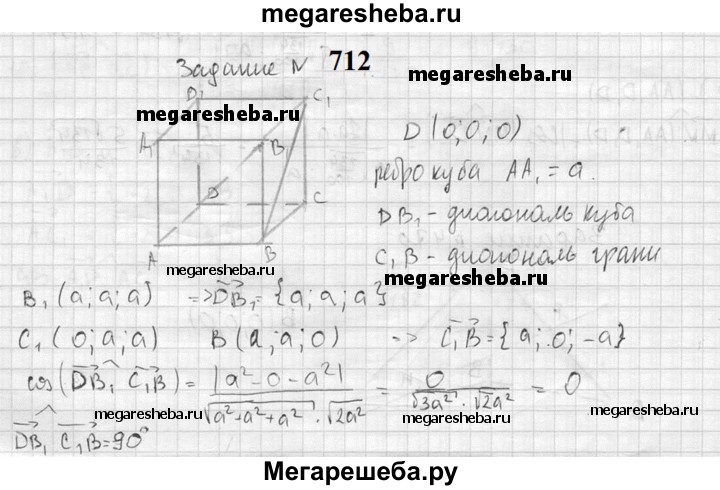 megaresheba.ru
Задание N 712
megaresheba.ru
megaresheba.ru
D1
C1
A1
B1
D
C
A
B
D (0;0;0)
ребро куба AA₁ = a.
DB₁ - диагональ куба
C₁B - диагональ грани
megaresheba.ru
megaresheba.ru
B₁ (a; a; a) => DB₁ = {a; a; a}
C₁ (0; a; a) B (a; a; 0) => C₁B = {a; 0; -a}
cos(DB₁ C₁B) = |a² - 0 - a²| / √a²+a²+a² · √2a² = 0 / √3a² · √2a² = 0
DB₁ C₁B = 90°
megaresheba.ru
megaresheba.ru
Мегарешеба.ру